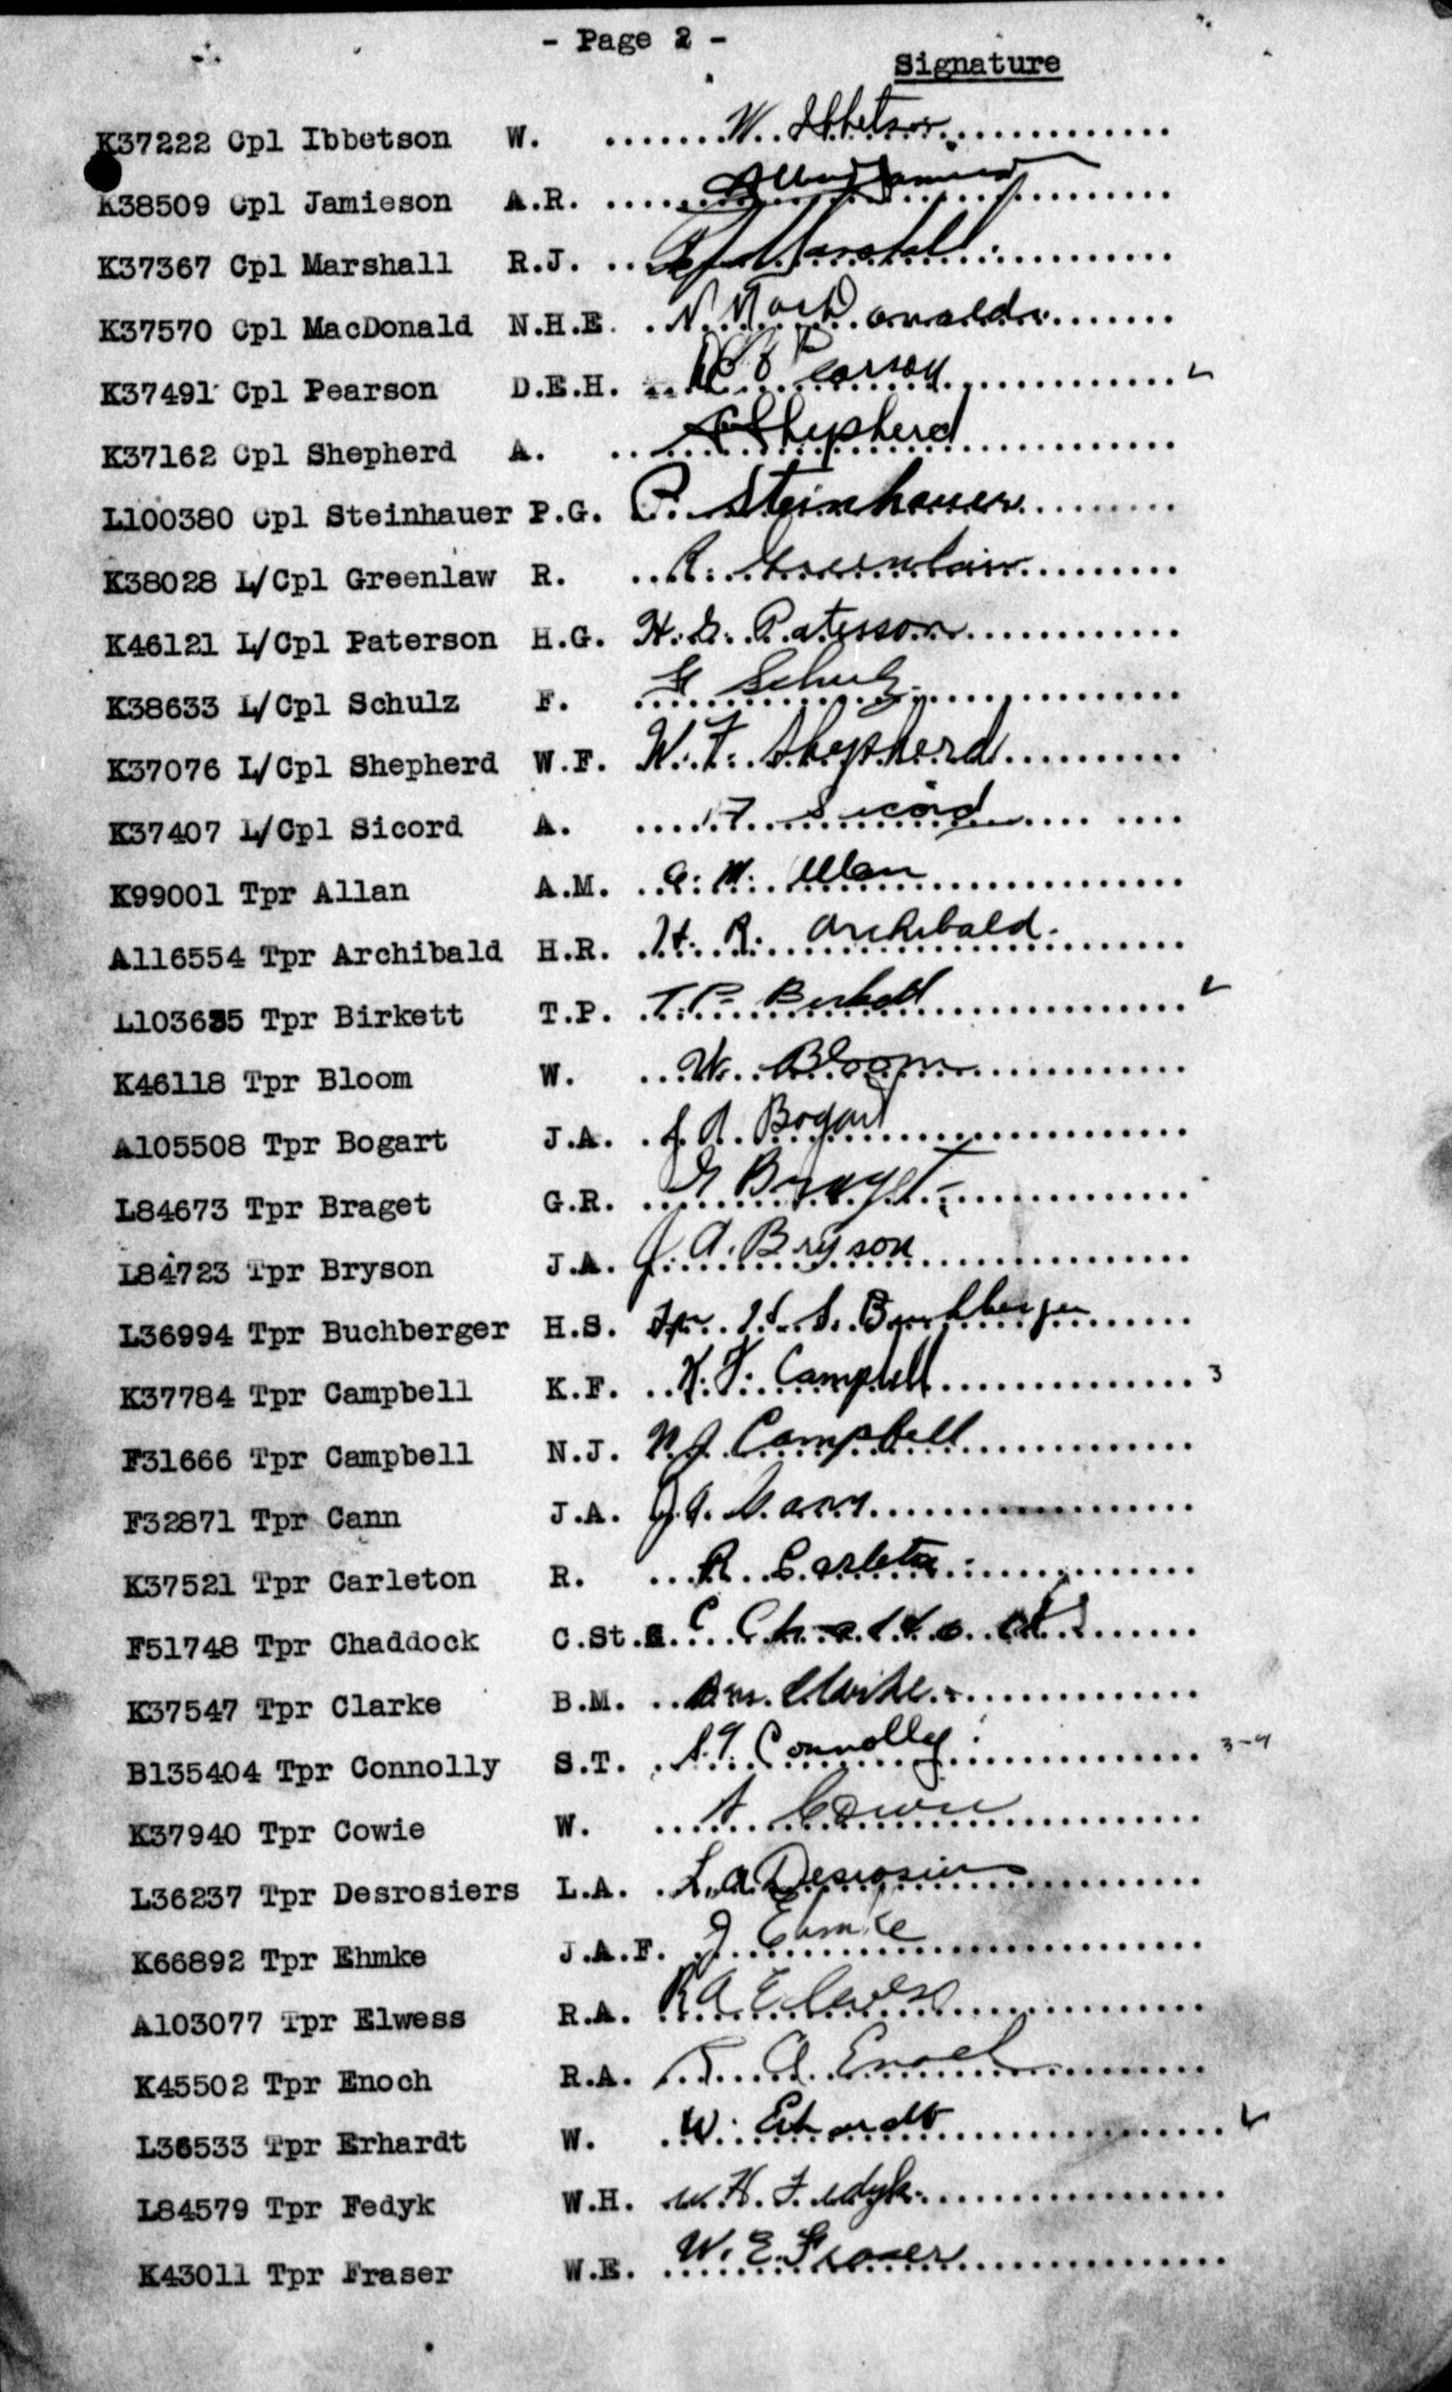 - Page 2 -
Signature
K37222 Cpl Ibbetson W. ....... W. Ibbetson ............
K38509 Cpl Jamieson A.R. ..... Jamieson ..........
K37367 Cpl Marshall R.J. .. RJ Marshall ..........
K37570 Cpl MacDonald N.H.E. . N. MacDonald .......
K37491 Cpl Pearson D.E.H. ... Pearson ............
K37162 Cpl Shepherd A. .. A Shepherd ............
L100380 Cpl Steinhauer P.G. P. Steinhauer .........
K38028 L/Cpl Greenlaw R. .. R. Greenlaw .........
K46121 L/Cpl Paterson H.G. H. G. Paterson ............
K38633 L/Cpl Schulz F. F Schulz ..............
K37076 L/Cpl Shepherd W.F. W. F. Shepherd ..........
K37407 L/Cpl Sicord A. .... A Sicord .... ....
K99001 Tpr Allan A.M. .. A. M. Allan ..............
A116554 Tpr Archibald H.R. . H. R. Archibald. .......
L103635 Tpr Birkett T.P. T.P. Birkett ..............
K46118 Tpr Bloom W. .. W. Bloom ............
A105508 Tpr Bogart J.A. . J. A. Bogart ..............
L84673 Tpr Braget G.R. .. G Braget ..............
L84723 Tpr Bryson J.A. J. A. Bryson ..............
L36994 Tpr Buchberger H.S. Tpr. H. S. Buchberger .......
K37784 Tpr Campbell K.F. .. K. F. Campbell .............. 3
F31666 Tpr Campbell N.J. N.J. Campbell ............
F32871 Tpr Cann J.A. J. A. Cann ................
K37521 Tpr Carleton R. ... R. Carleton ............
F51748 Tpr Chaddock C.St. C Chaddock .......
K37547 Tpr Clarke B.M. .. B M. Clarke ..............
B135404 Tpr Connolly S.T. . S. T. Connolly .............. 3-4
K37940 Tpr Cowie W. .... Cowie ............
L36237 Tpr Desrosiers L.A. . L. A. Desrosiers ...........
K66892 Tpr Ehmke J.A.F. J Ehmke ..............
A103077 Tpr Elwess R.A. R A Elwess ..............
K45502 Tpr Enoch R.A. R. A. Enoch .........
L36533 Tpr Erhardt W. .. W. Erhardt ..............
L84579 Tpr Fedyk W.H. W. H. Fedyk ..............
K43011 Tpr Fraser W.E. W. E. Fraser ..............